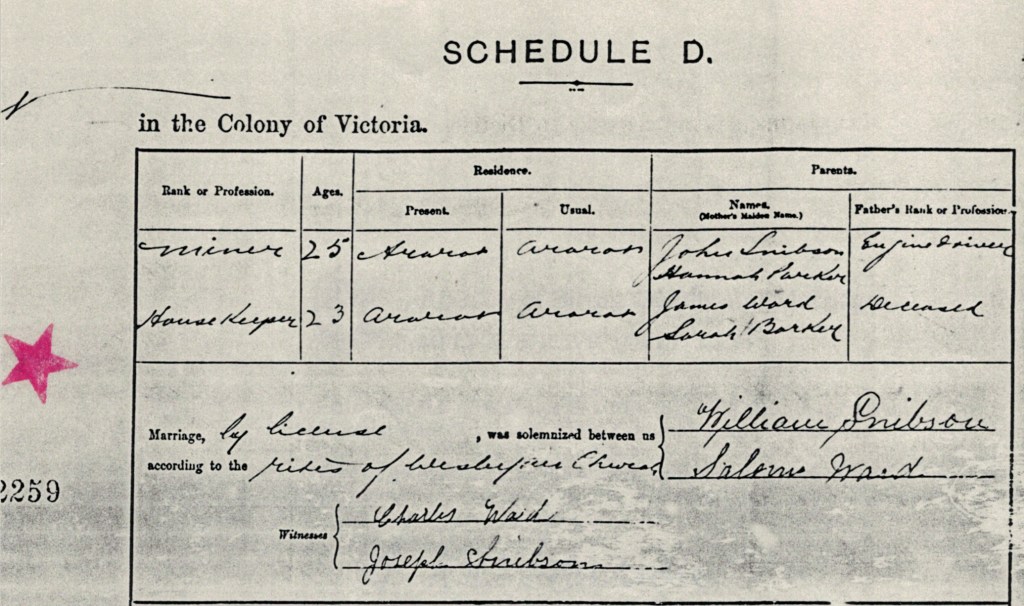 SCHEDULE D.
in the Colony of Victoria.
Rank or Profession. Ages. Residence. Parents.
Present. Usual. Names. Father's Rank or Profession.
(Mother's Maiden Name.)
Miner 25 Ararat Ararat John Snibson Engine driver
Hannah Parker
House Keeper 23 Ararat Ararat James Ward Deceased
Sarah Barker
Marriage, by license , was solemnized between us William Snibson
according to the rites of Wesleyan Church Salome Ward
2259
Charles Ward
Witnesses
Joseph Snibson